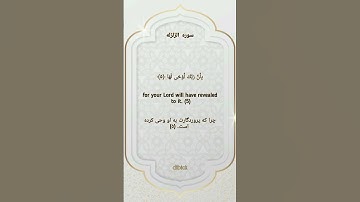 سوره الزلزله
بِأَنَّ رَبَّكَ أَوْحَىٰ لَهَا ﴿٥﴾
for your Lord will have revealed
to it. (5)
چرا که پروردگارت به او وحی کرده
است. (5)